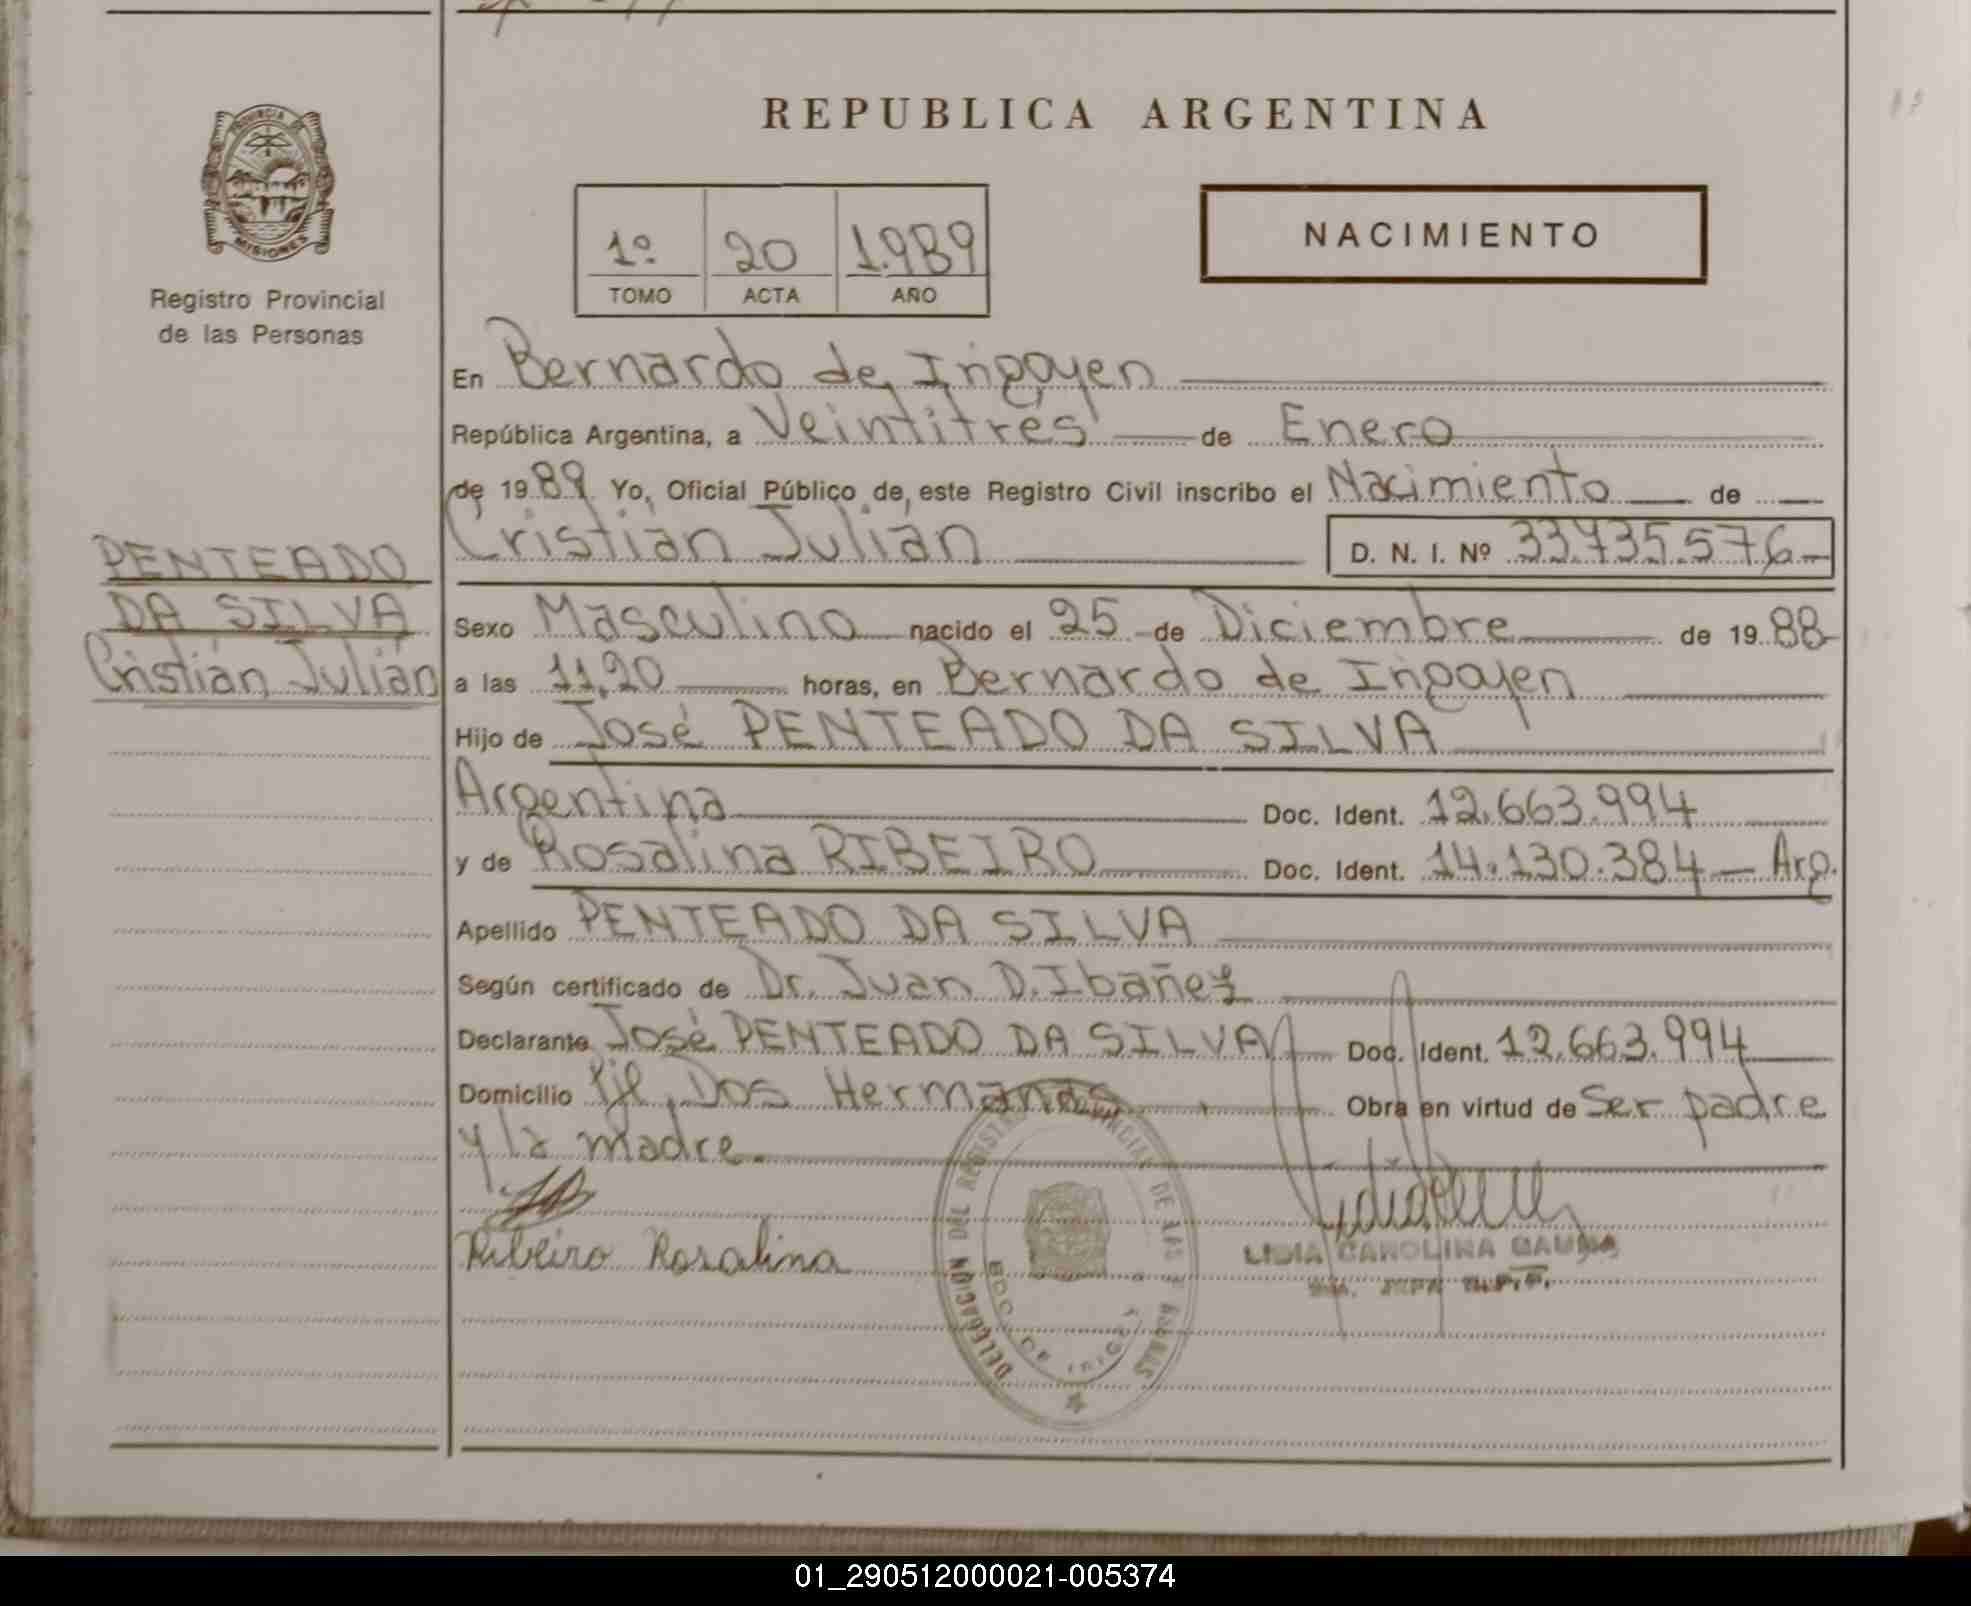 REPUBLICA ARGENTINA
PROVINCIA DE
MISIONES
Registro Provincial
de las Personas
NACIMIENTO
1º 20 1.989
TOMO ACTA AÑO
En Bernardo de Irigoyen
República Argentina, a Veintitrés de Enero
de 1989 Yo, Oficial Público de este Registro Civil inscribo el Nacimiento de
Cristián Julián D. N. I. Nº 33.735.576
PENTEADO
DA SILVA
Cristián Julián
Sexo Masculino nacido el 25 de Diciembre de 1988
a las 11,20 horas, en Bernardo de Irigoyen
Hijo de José PENTEADO DA SILVA
Argentina Doc. Ident. 12.663.994
y de Rosalina RIBEIRO Doc. Ident. 14.130.384 - Arg.
Apellido PENTEADO DA SILVA
Según certificado de Dr. Juan D. Ibañez
Declarante José PENTEADO DA SILVA Doc. Ident. 12.663.994
Domicilio Dos Hermanas Obra en virtud de Ser padre
y la madre.
Ribeiro Rosalina
DELEGACION DEL REGISTRO PROVINCIAL DE LAS
BDO. DE IRIGOYEN
LIDIA CAROLINA
01_290512000021-005374